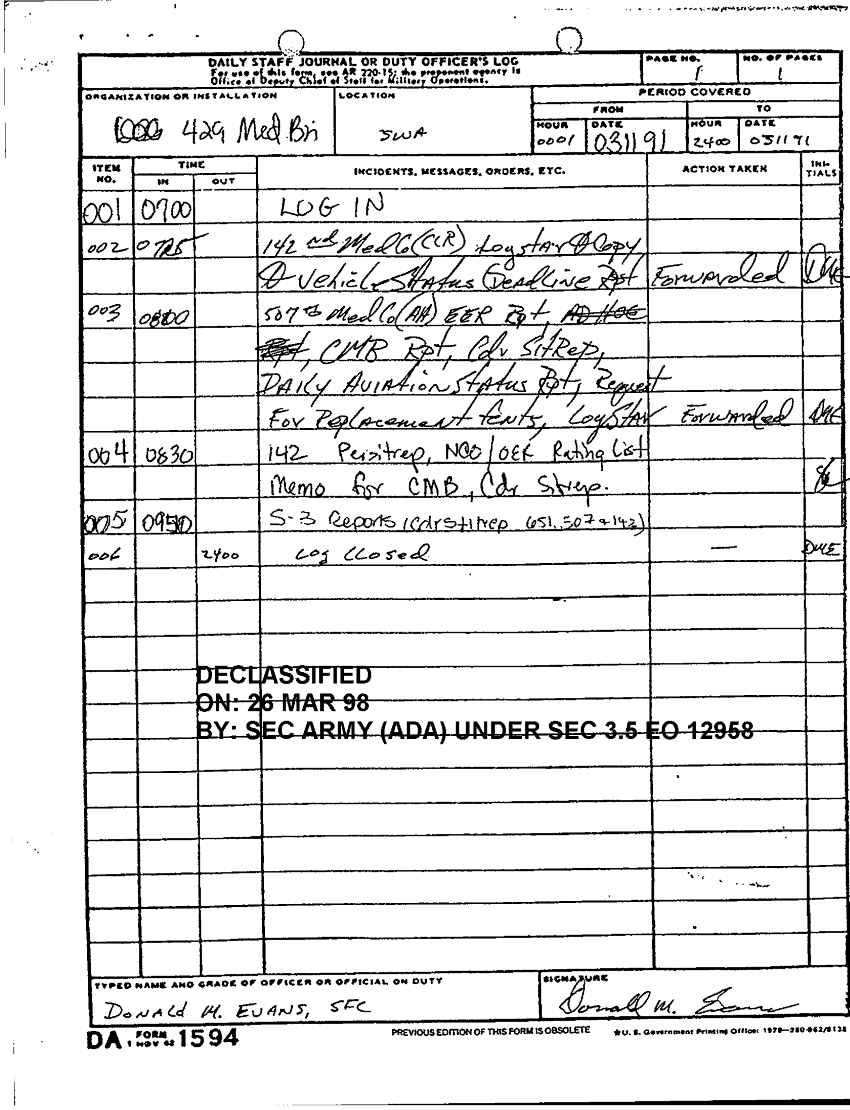 DAILY STAFF JOURNAL OR DUTY OFFICER'S LOG
For use of this form, see AR 220-15; the proponent agency is
Office of Deputy Chief of Staff for Military Operations.
PAGE NO.
1
NO. OF PAGES
1
ORGANIZATION OR INSTALLATION
429 Med Bn
LOCATION
SWA
PERIOD COVERED
FROM
TO
HOUR
0001
DATE
031191
HOUR
2400
DATE
031191
ITEM NO.
TIME
IN
OUT
INCIDENTS, MESSAGES, ORDERS, ETC.
ACTION TAKEN
INI-TIALS
001 0700 LOG IN
002 0725 142nd Med Co (CLR) LogStar Copy
Vehicle Status Deadline Rpt Forwarded DME
003 0800 507th Med Co (AA) EER Rpt, AD HOC
Rpt, CMB Rpt, Cdr SitRep,
DAILY AVIATION STATUS Rpt, Request
For Replacement Tents, LogStar Forwarded DME
004 0830 142 Perisitrep, NCO/OER Rating List
Memo for CMB, Cdr Sitrep.
005 0950 S-3 Reports (Cdr Sitrep 651, 507 & 142)
006 2400 Log Closed — DME
DECLASSIFIED
ON: 26 MAR 98
BY: SEC ARMY (ADA) UNDER SEC 3.5 EO 12958
TYPED NAME AND GRADE OF OFFICER OR OFFICIAL ON DUTY
DONALD M. EVANS, SFC
SIGNATURE
Donald M. Evans
DA FORM 1 NOV 62 1594
PREVIOUS EDITION OF THIS FORM IS OBSOLETE
☆U. S. Government Printing Office: 1979—280-962/8138